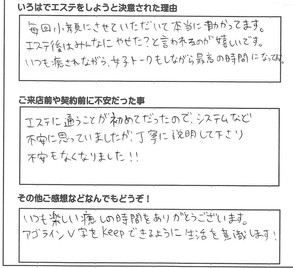 いろはでエステをしようと決意された理由
毎回小顔にさせていただいて本当に助かってます。
エステ後はみんなにやせた?と言われるのが嬉しいです。
いつも癒されながら、女子トークもしながら最高の時間になってます
ご来店前や契約前に不安だった事
エステに通うことが初めてだったので、システムなど
不安に思っていましたが、丁寧に説明して下さり
不安もなくなりました!!
その他ご感想などなんでもどうぞ!
いつも楽しい癒しの時間をありがとうございます。
アゴラインV字をkeepできるように生活を意識します!